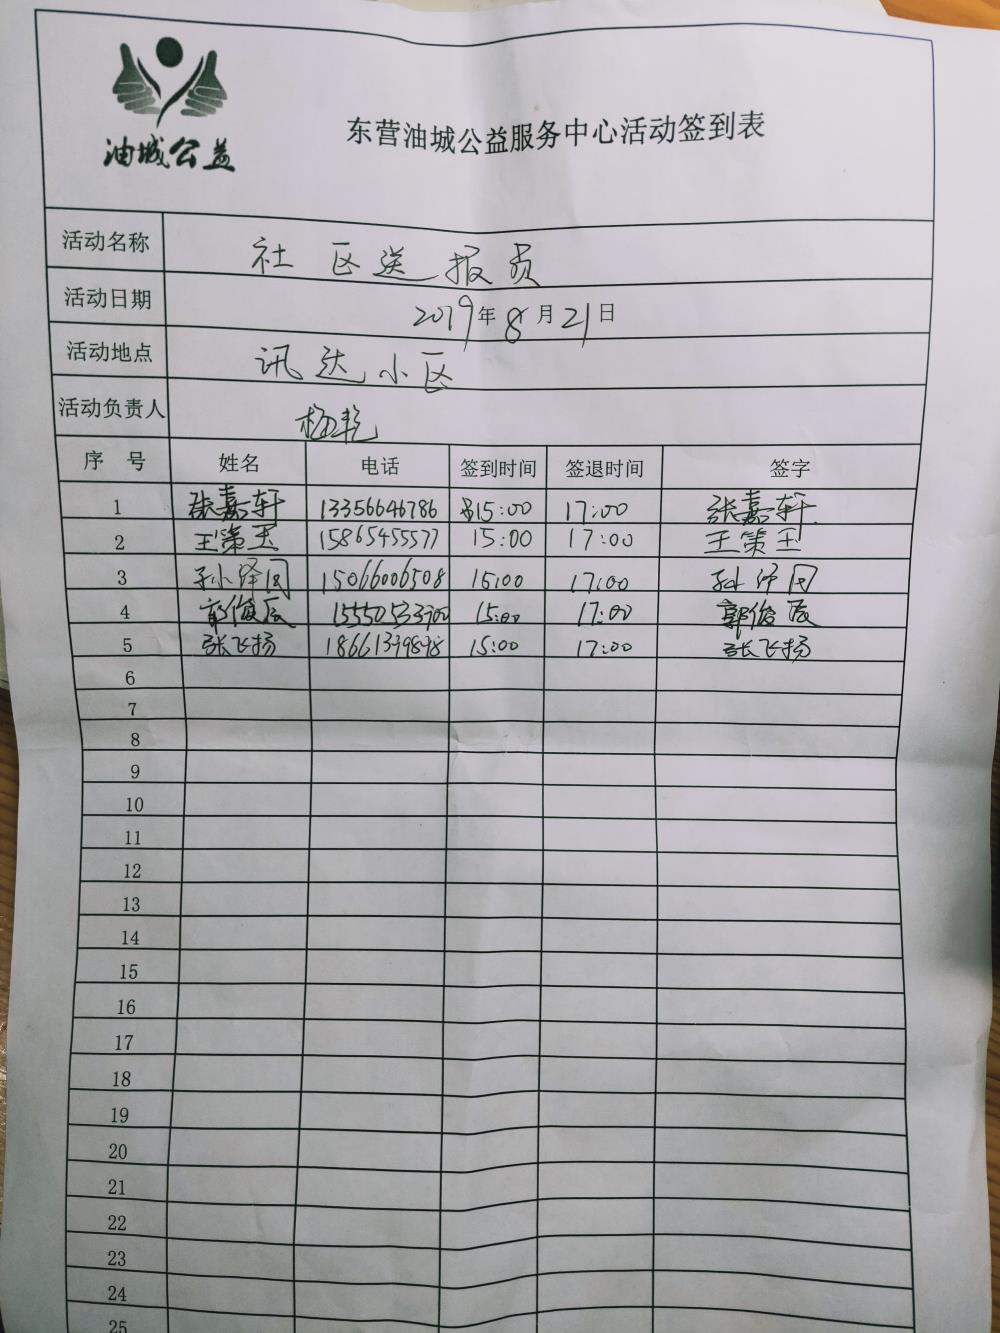 油城公益
东营油城公益服务中心活动签到表
活动名称 社区送报员
活动日期 2019年8月21日
活动地点 讯达小区
活动负责人 杨艳
序 号 姓名 电话 签到时间 签退时间 签字
1 张嘉轩 13356646786 15:00 17:00 张嘉轩
2 王策玉 15865455577 15:00 17:00 王策王
3 孙泽同 15066006508 15:00 17:00 孙泽同
4 郭俊辰 15:00 17:00 郭俊辰
5 张飞扬 15:00 17:00 张飞扬
6
7
8
9
10
11
12
13
14
15
16
17
18
19
20
21
22
23
24
25